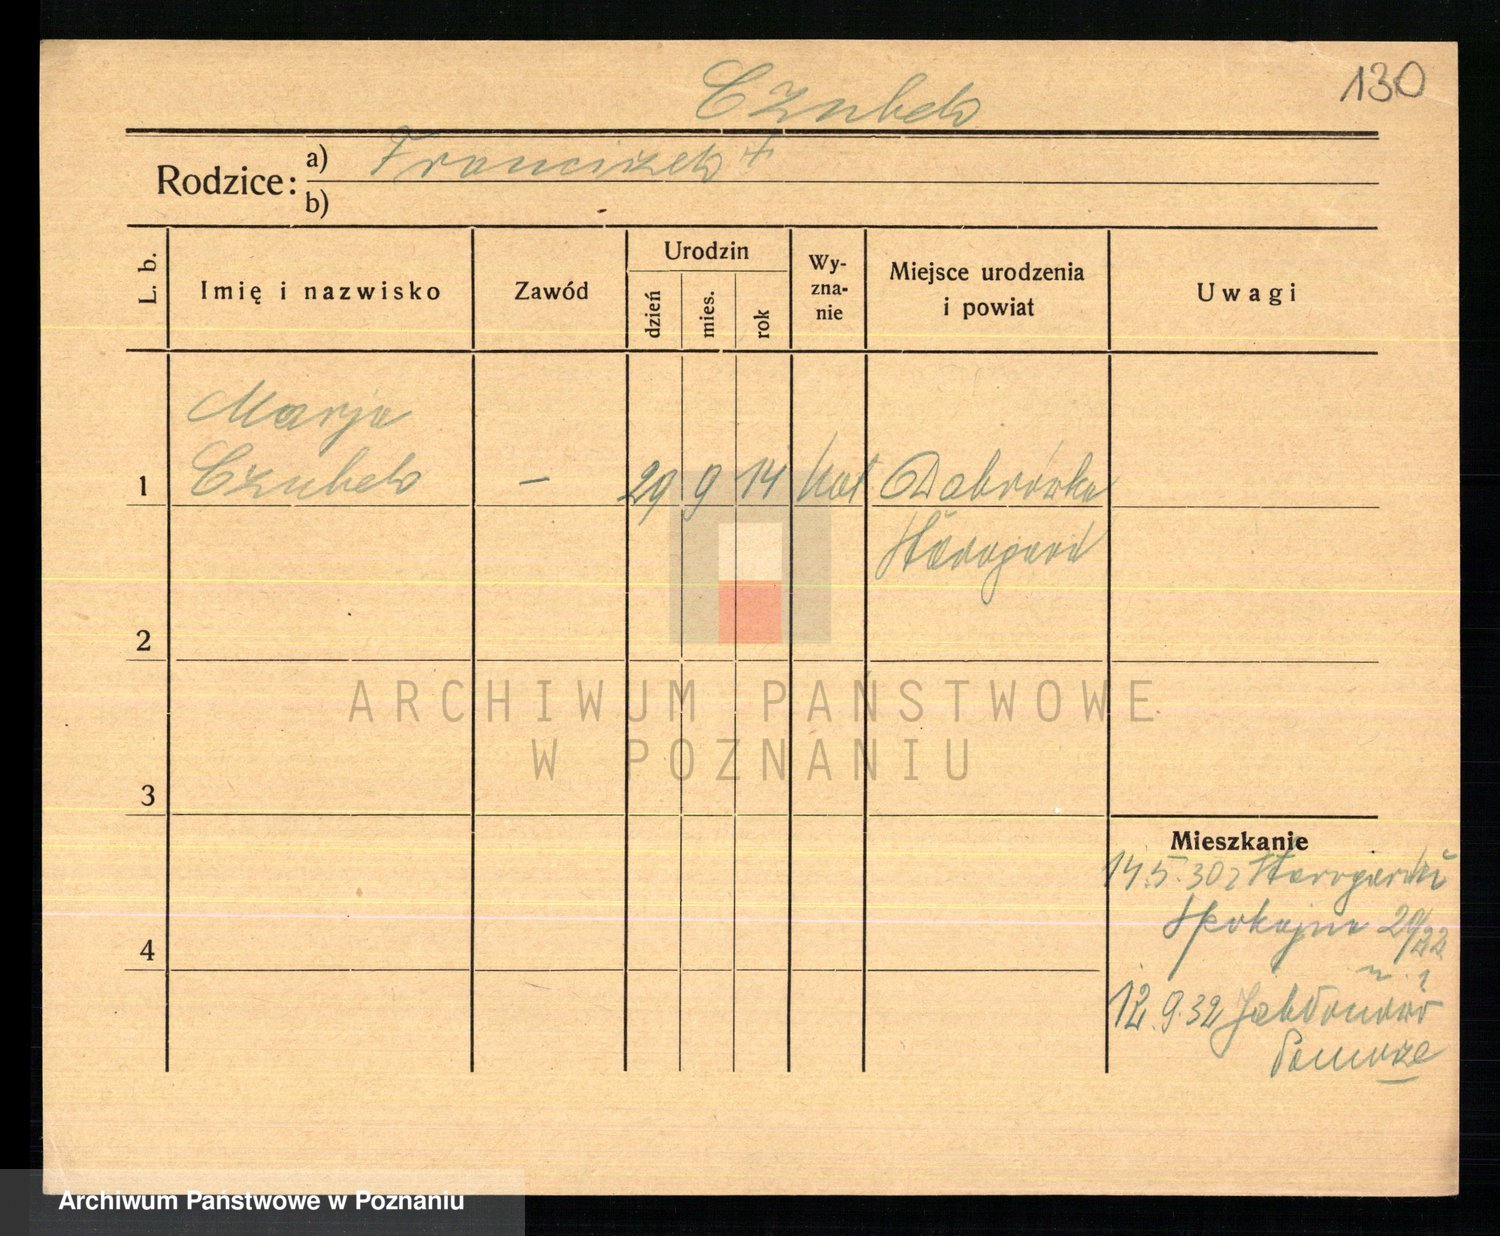 130
Czubek
Rodzice: a) Franciszek +
b)
L. b. Imię i nazwisko Zawód Urodzin dzień mies. rok Wy-zna-nie Miejsce urodzenia i powiat Uwagi
Marja
1 Czubek — 29 9 14 kat Dabrówka
Starogard
2
3
ARCHIWUM PAŃSTWOWE
W POZNANIU
Mieszkanie
14.5.30 z Starogardu
Spokojna 29/22
4
12.9.32 Jabłonowo
Pomorze
Archiwum Państwowe w Poznaniu